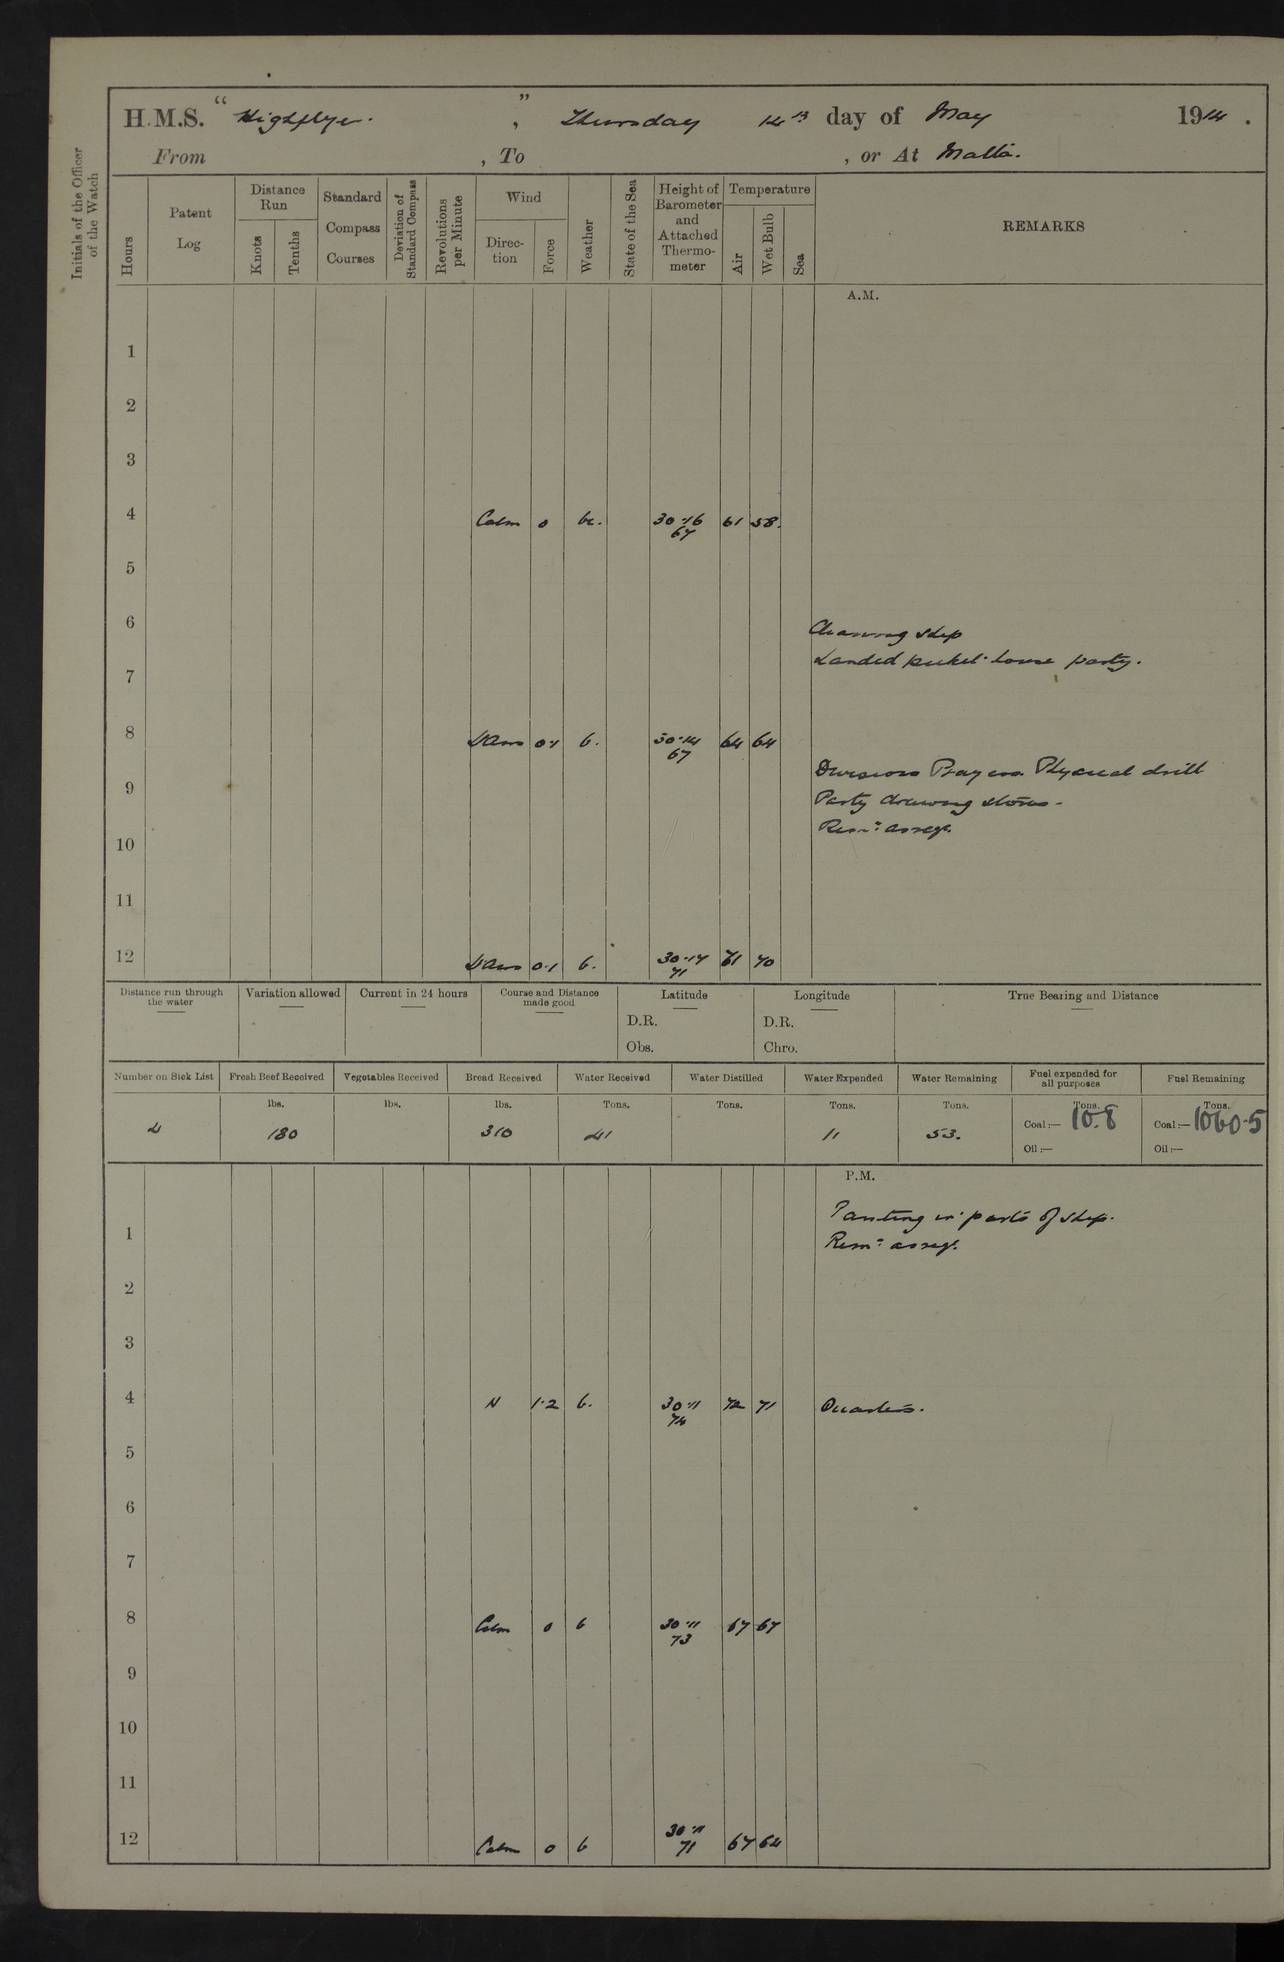 H.M.S. "Highflyer.", Thursday 14th day of May 1914.
From , To , or At Malta.
Initials of the Officer of the Watch
Hours
Patent Log
Distance Run
Knots
Tenths
Standard Compass Courses
Deviation of Standard Compass
Revolutions per Minute
Wind
Direction
Force
Weather
State of the Sea
Height of Barometer and Attached Thermometer
Temperature
Air
Wet Bulb
Sea
REMARKS
A.M.
1
2
3
4 Calm 0 bc. 30.16 61 58.
67
5
6
Cleaning ship
Landed picket-house party.
7
8 0.1 b. 30.14 64 64
67
Divisions Prayers Physical drill
9
Party drawing stores.
Remr asreq.
10
11
12 0.1 b. 30.17 61 70
71
Distance run through the water
Variation allowed
Current in 24 hours
Course and Distance made good
Latitude
D.R.
Obs.
Longitude
D.R.
Chro.
True Bearing and Distance
Number on Sick List
Fresh Beef Received
Vegetables Received
Bread Received
Water Received
Water Distilled
Water Expended
Water Remaining
Fuel expended for all purposes
Fuel Remaining
lbs. lbs. lbs. Tons. Tons. Tons. Tons. Tons. Tons.
4 180 310 41 11 53. Coal:— 10.8 Coal:— 1060.5
Oil:— Oil:—
P.M.
Painting in parts of ship.
1
Remr asreq.
2
3
4 N 1.2 b. 30.11 72 71 Quarters.
74
5
6
7
8 Calm 0 b 30.11 67 67
73
9
10
11
12 Calm 0 b 30.11 67 64
71